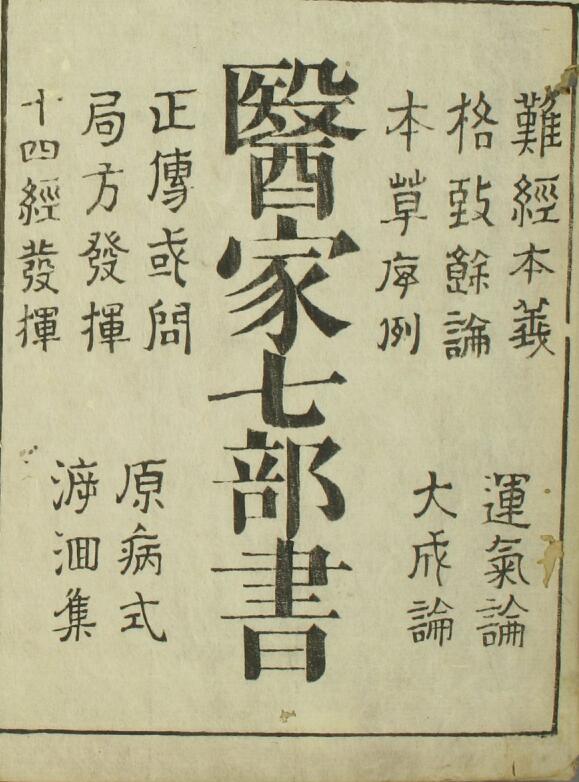 難經本義
格致餘論
本草序例
運氣論
大成論
醫家七部書
正傳或問
局方發揮
十四經發揮
原病式
泝洄集